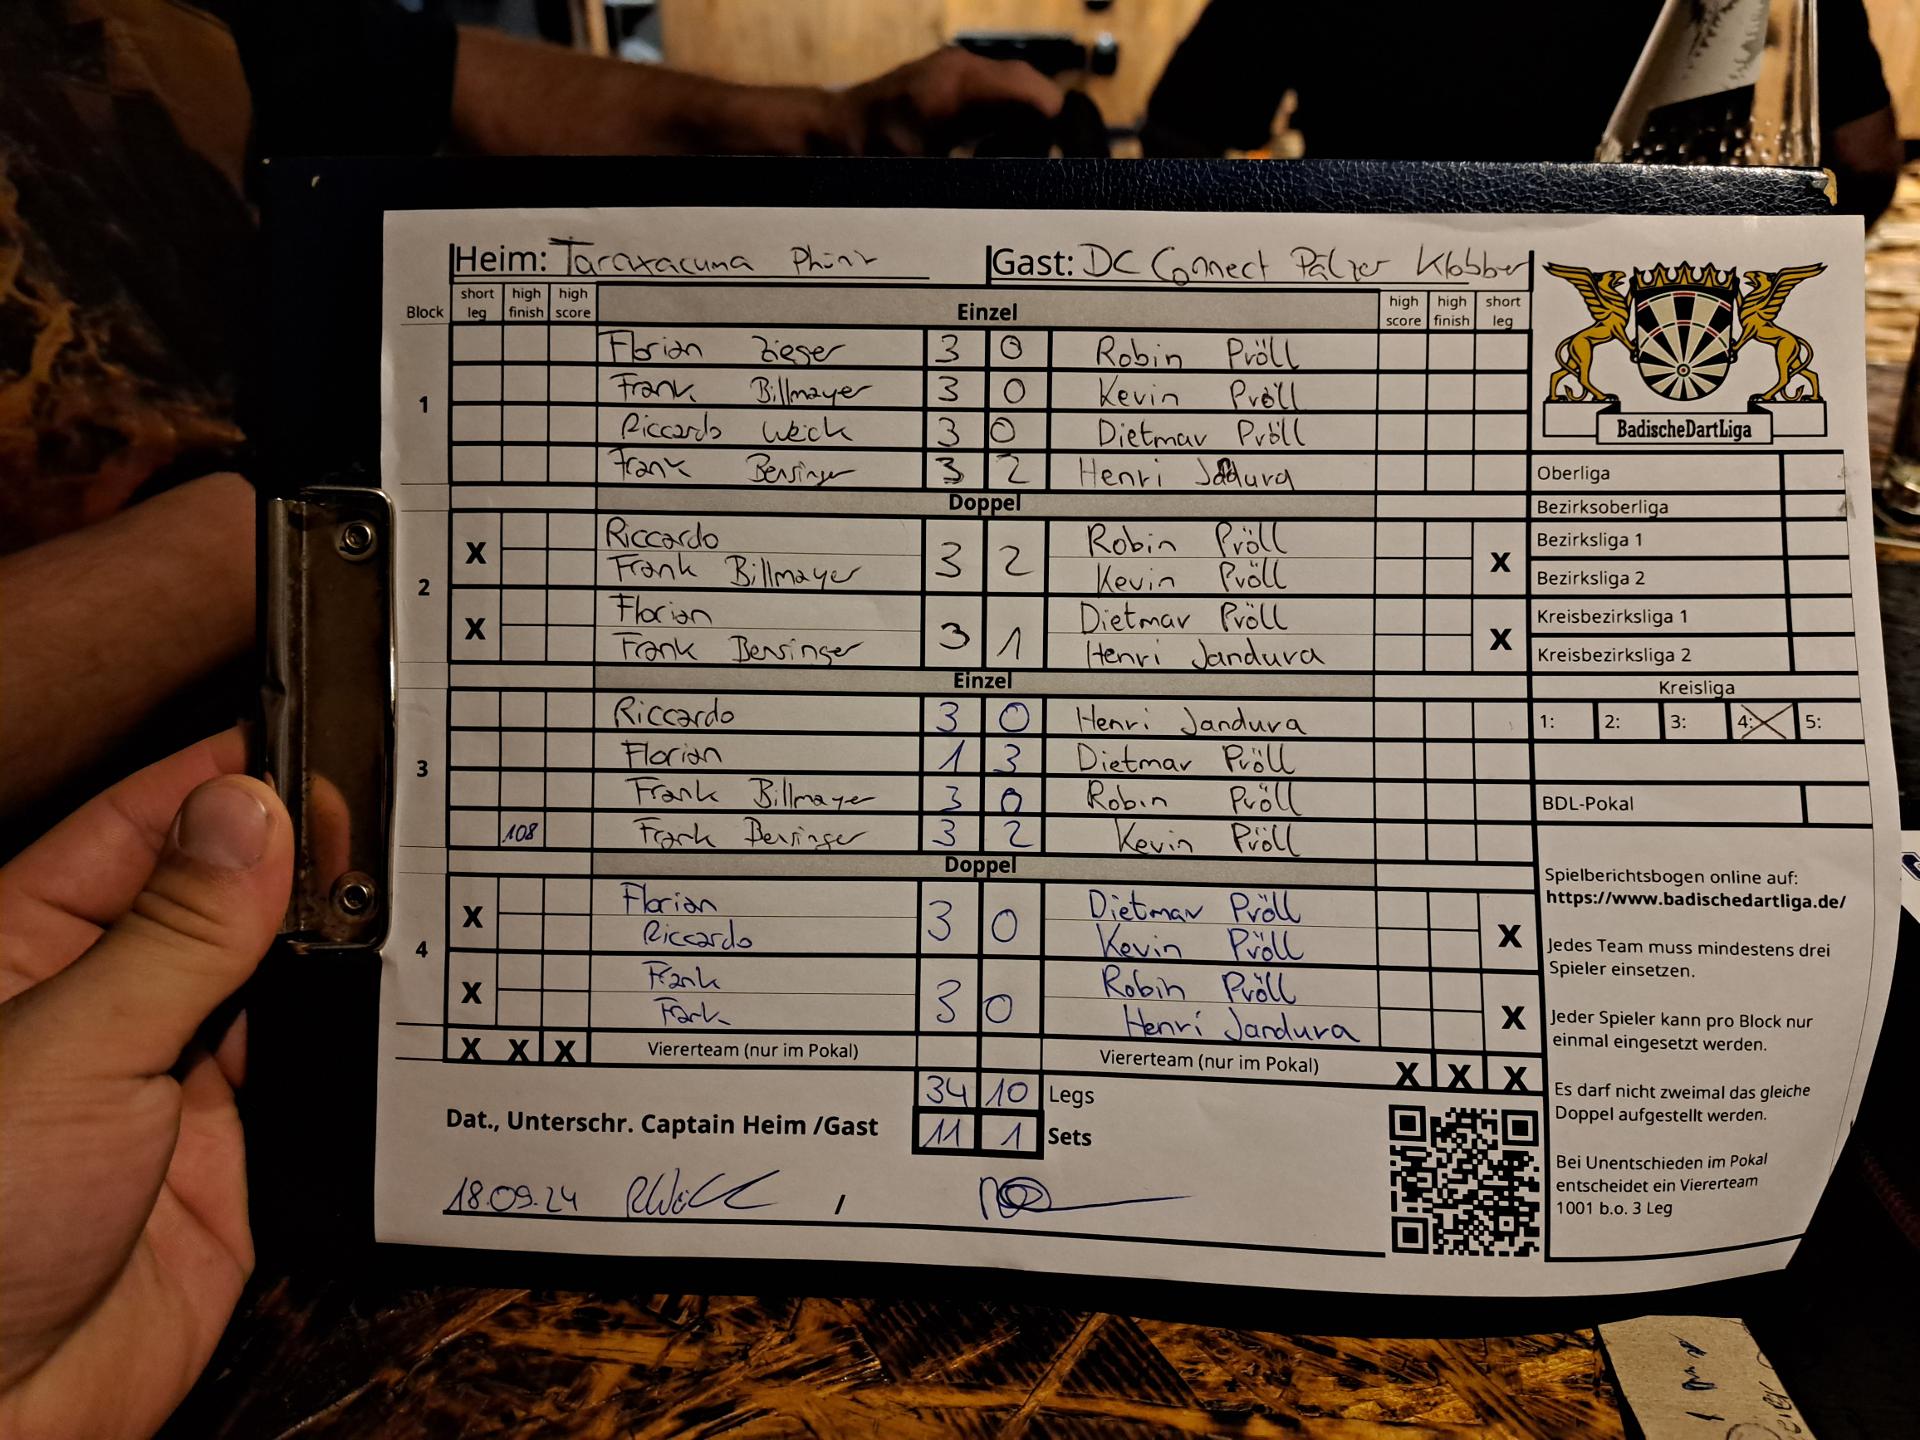 Heim: Taraxacuma Phönix Gast: DC Connect Pälzer Klobber
Block short leg high finish high score Einzel high score high finish short leg
1
Florian Zieger 3 0 Robin Pröll
Frank Billmayer 3 0 Kevin Pröll
Riccardo Weick 3 0 Dietmar Pröll
Frank Bensinger 3 2 Henri Jandura
Doppel
2
X Riccardo 3 2 Robin Pröll X
Frank Billmayer Kevin Pröll
X Florian 3 1 Dietmar Pröll X
Frank Bensinger Henri Jandura
Einzel
3
Riccardo 3 0 Henri Jandura
Florian 1 3 Dietmar Pröll
Frank Billmayer 3 0 Robin Pröll
108 Frank Bensinger 3 2 Kevin Pröll
Doppel
4
X Florian 3 0 Dietmar Pröll X
Riccardo Kevin Pröll
X Frank 3 0 Robin Pröll X
Frank Henri Jandura
X X X Viererteam (nur im Pokal) Viererteam (nur im Pokal) X X X
34 10 Legs
Dat., Unterschr. Captain Heim /Gast 11 1 Sets
18.09.24 /
BadischeDartLiga
Oberliga
Bezirksoberliga
Bezirksliga 1
Bezirksliga 2
Kreisbezirksliga 1
Kreisbezirksliga 2
Kreisliga
1: 2: 3: 4: X 5:
BDL-Pokal
Spielberichtsbogen online auf:
https://www.badischedartliga.de/
Jedes Team muss mindestens drei
Spieler einsetzen.
Jeder Spieler kann pro Block nur
einmal eingesetzt werden.
Es darf nicht zweimal das gleiche
Doppel aufgestellt werden.
Bei Unentschieden im Pokal
entscheidet ein Viererteam
1001 b.o. 3 Leg